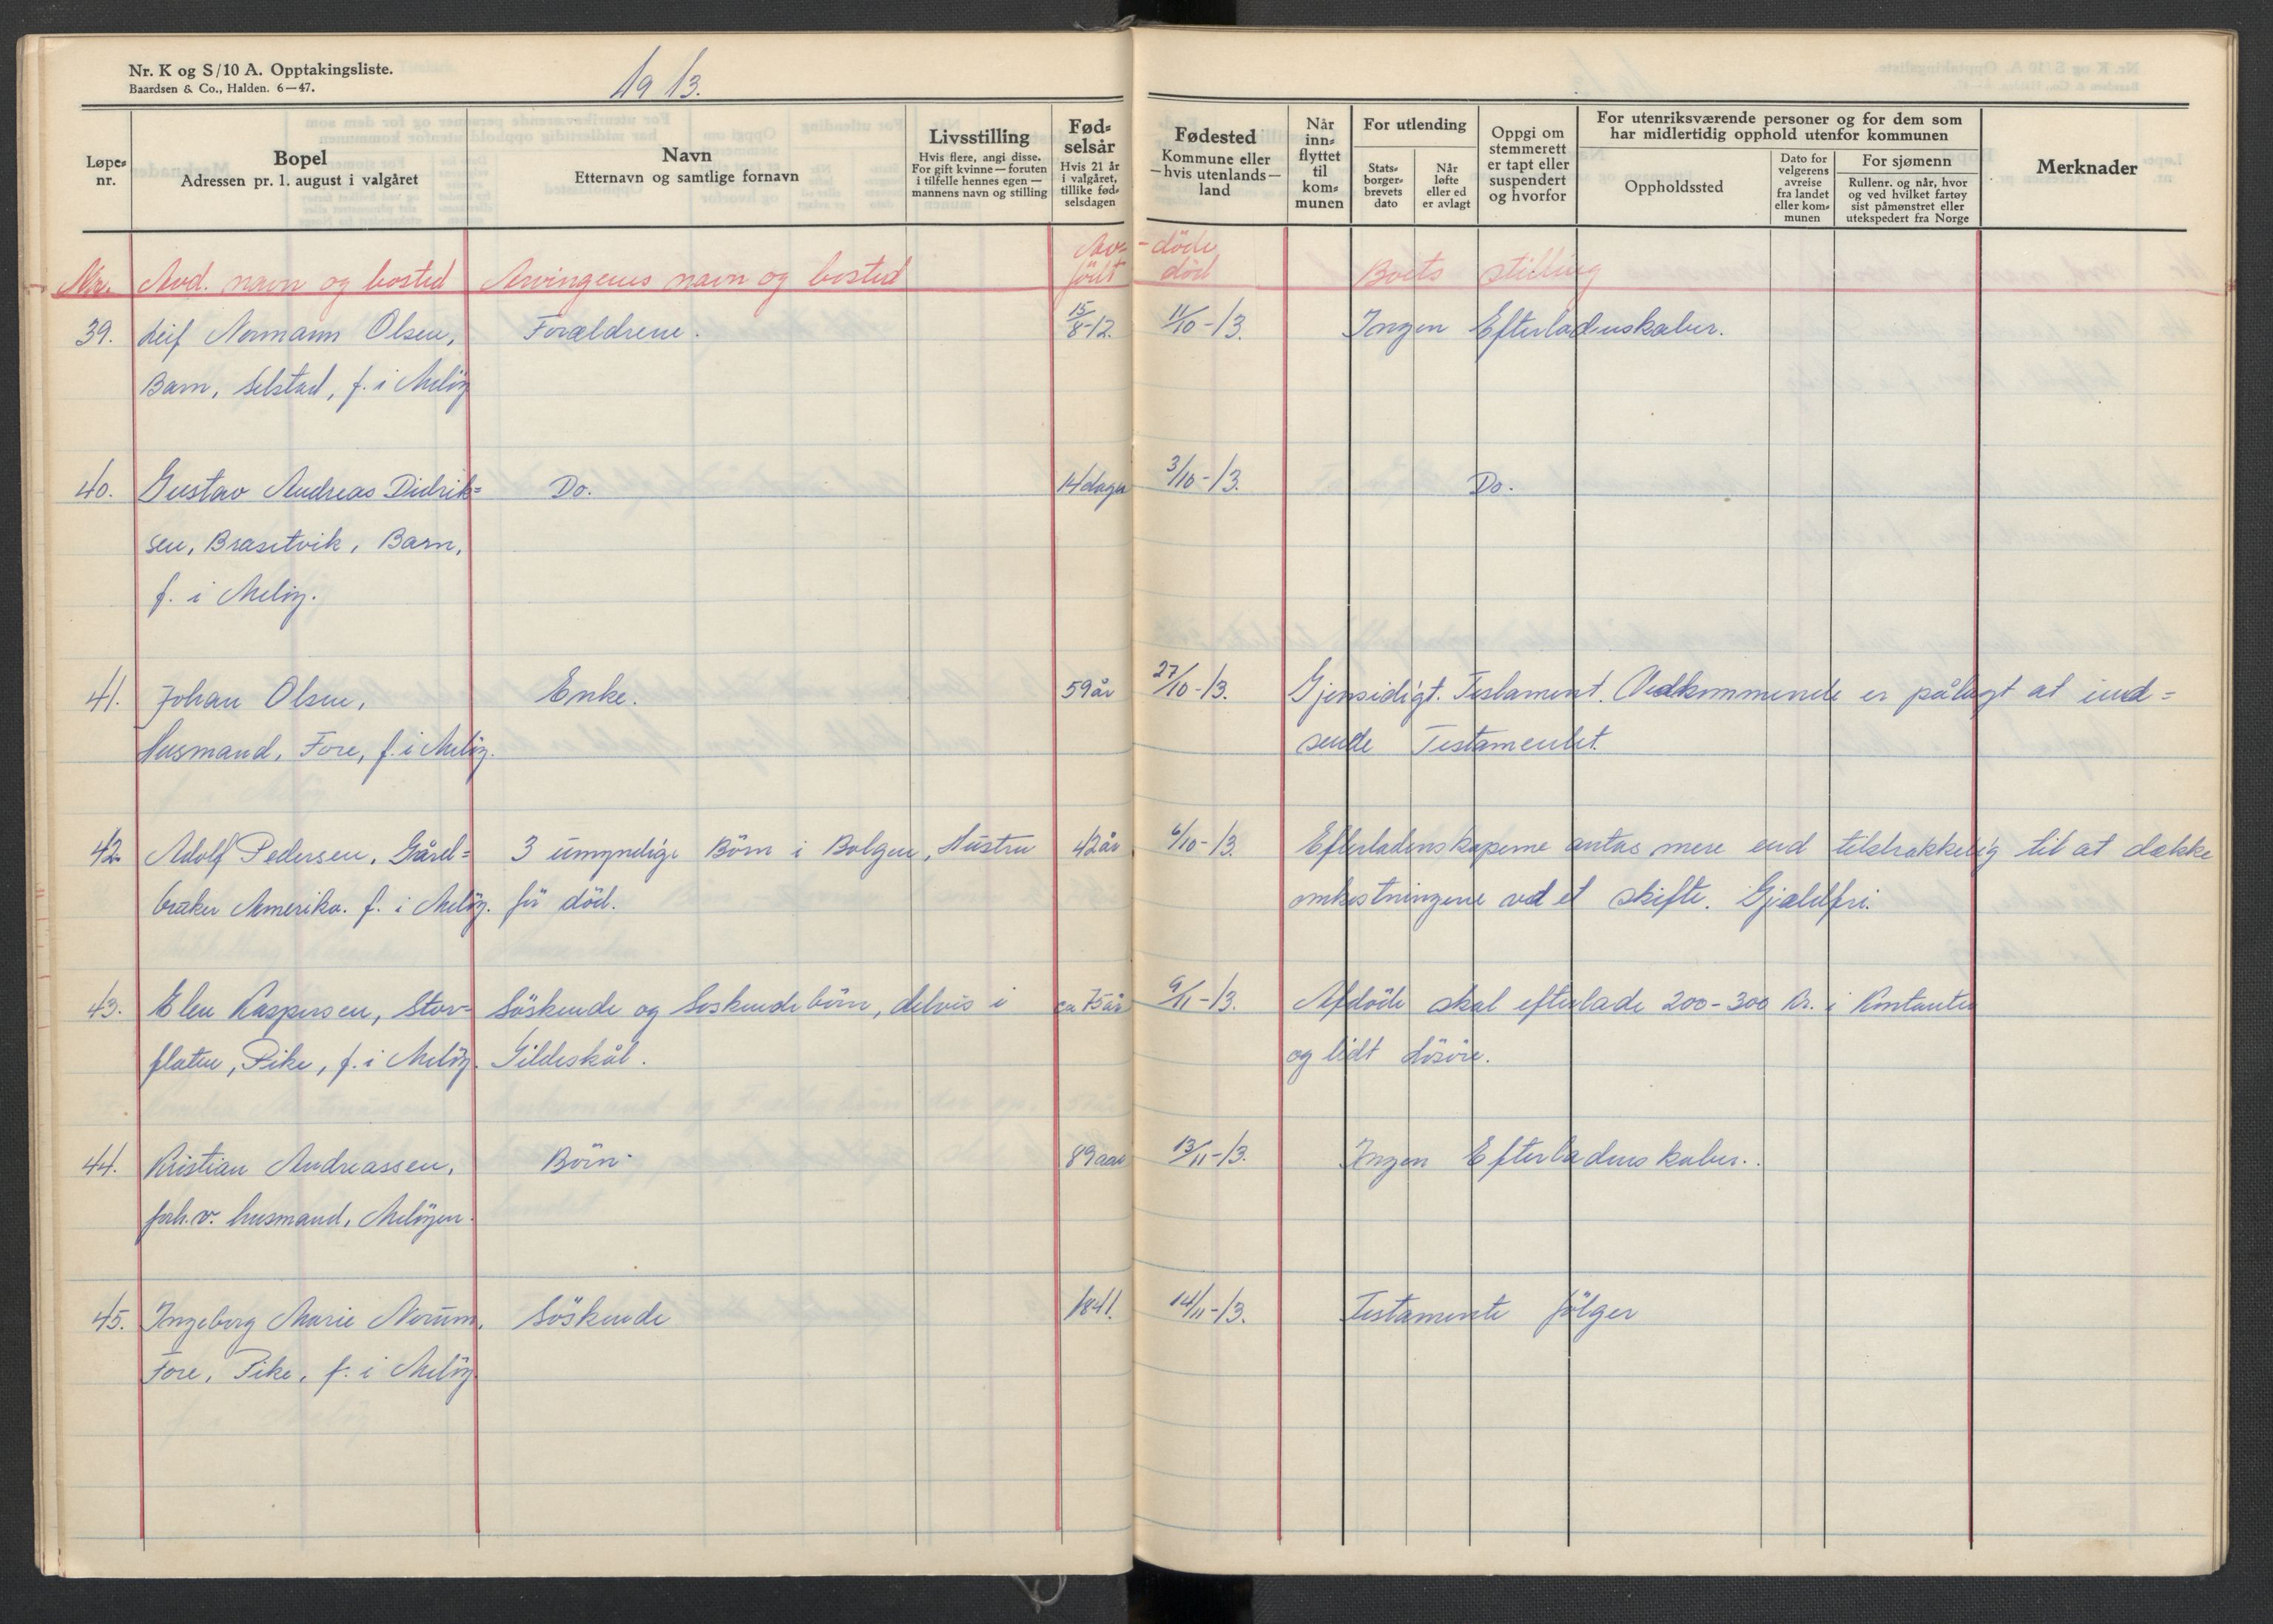 Nr. K og S/10 A. Opptakingsliste.
Baardsen & Co., Halden. 6—47.
1913.
Løpe-nr.
Bopel
Adressen pr. 1. august i valgåret
Navn
Etternavn og samtlige fornavn
Livsstilling
Hvis flere, angi disse.
For gift kvinne — foruten
i tilfelle hennes egen —
mannens navn og stilling
Fød-
selsår
Hvis 21 år
i valgåret,
tillike fød-
selsdagen
Fødested
Kommune eller
— hvis utenlands —
land
Når
inn-
flyttet
til
kom-
munen
For utlending
Stats-
borger-
brevets
dato
Når
løfte
eller ed
er avlagt
Oppgi om
stemmerett
er tapt eller
suspendert
og hvorfor
For utenriksværende personer og for dem som
har midlertidig opphold utenfor kommunen
Oppholdssted
Dato for
velgerens
avreise
fra landet
eller kom-
munen
For sjømenn
Rullenr. og når, hvor
og ved hvilket fartøy
sist påmønstret eller
utekspedert fra Norge
Merknader
Av- - döde
Nr. Avd. navn og bosted Arvingenes navn og bosted födt död Boets stilling
39. Leif Normann Olsen, Forældrene. 15/8-12. 11/10-13. Ingen Efterladenskaber.
Barn, Selstad, f. i Melöy
40. Gustav Andreas Didrik= Do. 14 dager 3/10-13. Do.
sen, Brasetvik, Barn,
f. i Melöy.
41. Johan Olsen, Enke. 59 år 27/10-13. Gjensidigt. Testament. Vedkommende er pålagt at ind=
Husmand, Fore, f. i Melöy. sende Testamentet.
42. Adolf Pedersen, Gård= 3 umyndige Börn i Bolgen, Hustru 42 år 6/10-13. Efterladenskaperne antas mere end tilstrækkelig til at dække
bruker Amerika. f. i Melöy. för död. omkostningene ved et skifte. Gjældfri.
43. Elen Kaspersen, Stor= Söskende og Soskendebörn, delvis i ca 75 år 9/11-13. Afdöde skal efterlade 200-300 Kr. i Kontanter
flaten, Pike, f. i Melöy. Gildeskål. og lidt lösöre.
44. Kristian Andreassen, Börn. 89 aar 13/11-13. Ingen Efterladenskaber.
forh.v. husmand, Melöyen.
45. Ingeborg Marie Nerum, Söskende 1841. 14/11-13. Testamente fölger
Fore, Pike, f. i Melöy